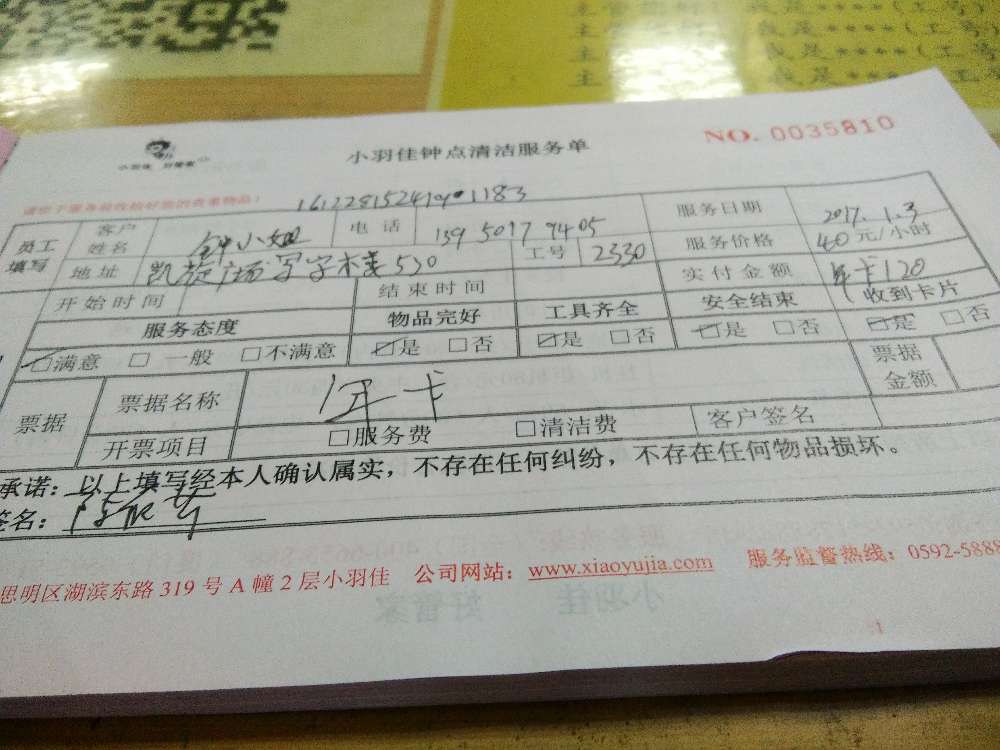 主
我是****(工号
主
我是****(工号
主
是****(工号
NO. 0035810
小羽佳 好管家
小羽佳钟点清洁服务单
请您于服务前收检好您的贵重物品!
员工填写 客户姓名 钟小姐 电话 服务日期 2017.1.3
地址 凯旋广场写字楼530 工号 2330 服务价格 40元/小时
开始时间 结束时间 实付金额 年卡120
服务态度 物品完好 工具齐全 安全结束 收到卡片
☑满意 □一般 □不满意 ☑是 □否 ☑是 □否 ☑是 □否 ☑是 □否
票据 票据名称 年卡 票据金额
开票项目 □服务费 □清洁费 客户签名
承诺：以上填写经本人确认属实，不存在任何纠纷，不存在任何物品损坏。
签名：
思明区湖滨东路319号A幢2层小羽佳 公司网站：www.xiaoyujia.com 服务监督热线：0592-5888